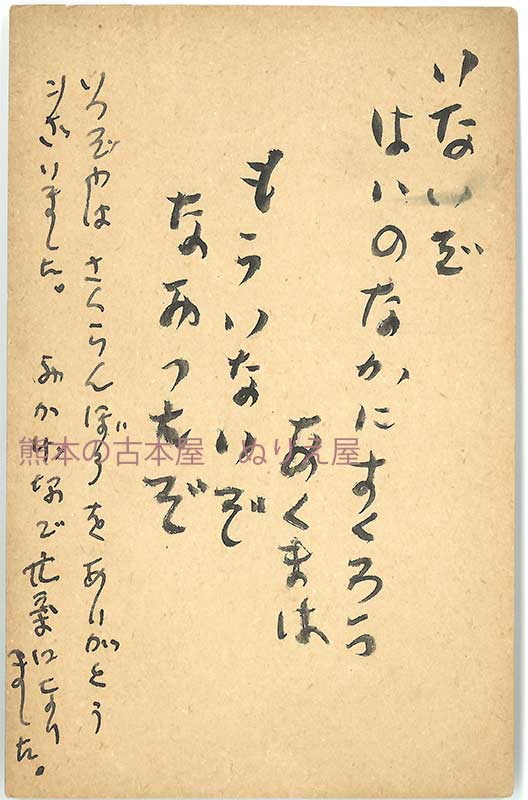 いないぞ
はいのなかにすくろう
あくまは
もういないぞ
なおったぞ
いつぞやはさくらんぼうをありがとう
ございました。
おかげ様で元気になり
ました。
熊本の古本屋 ぬりえ屋